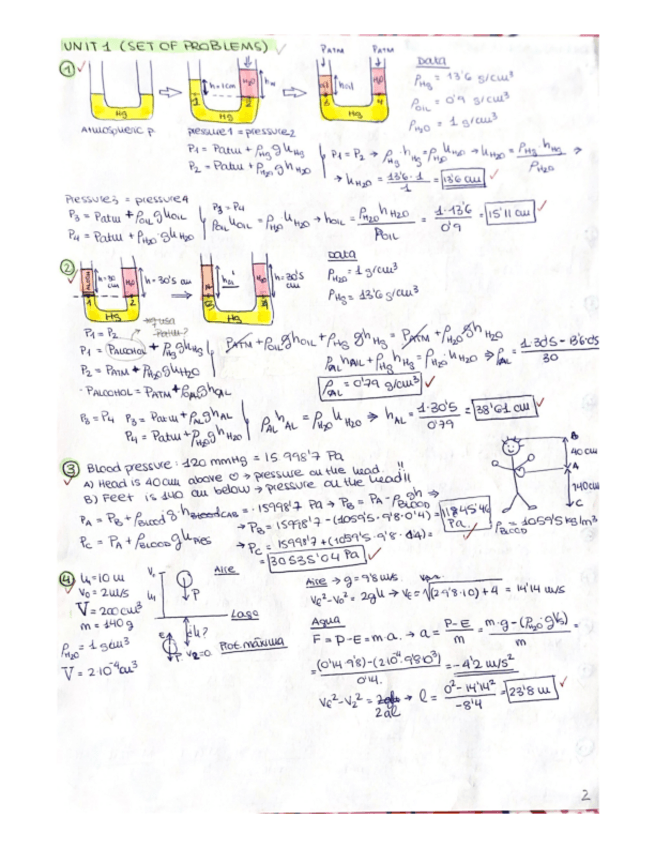 UNIT 1 (SET OF PROBLEMS)
1
Hg
Atmospheric p.
h=1cm
H2O
hw
1
2
Hg
PATM
PATM
hoil
H2O
3
4
Hg
DATA
ρHg = 13'6 g/cm³
ρOIL = 0'9 g/cm³
ρH2O = 1 g/cm³
pressure 1 = pressure 2
P1 = Patm + ρHg g hHg
P2 = Patm + ρH2O g hH2O
P1 = P2 → ρHg hHg = ρH2O hH2O → hH2O = ρHg hHg / ρH2O →
→ hH2O = 13'6·1 / 1 = 13'6 cm
Pressure 3 = pressure 4
P3 = Patm + ρOIL g hOIL
P4 = Patm + ρH2O g hH2O
P3 = P4
ρOIL hOIL = ρH2O hH2O → hOIL = ρH2O hH2O / ρOIL = 1·13'6 / 0'9 = 15'11 cm
2
h=30 cm
H2O
h=30'5 cm
1
2
Hg
hAL
h=30'5 cm
Hg
DATA
ρH2O = 1 g/cm³
ρHg = 13'6 g/cm³
P1 = P2
P1 = PALCOHOL + ρHg g hHg
P2 = PATM + ρH2O g hH2O
· PALCOHOL = PATM + ρAL g hAL
PATM + ρOIL g hOIL + ρHg g hHg = PATM + ρH2O g hH2O
ρAL hAL + ρHg hHg = ρH2O hH2O → ρAL = 1·30'5 - 13'6·0'5 / 30
ρAL = 0'79 g/cm³
P3 = P4 P3 = Patm + ρAL g hAL
P4 = Patm + ρH2O g hH2O
ρAL hAL = ρH2O hH2O → hAL = 1·30'5 / 0'79 = 38'61 cm
3 Blood pressure: 120 mmHg = 15998'7 Pa
A) Head is 40 cm above ♡ → pressure on the head. !!
B) Feet is 140 cm below → pressure on the head!!
PA = PB + ρBlood g·h = 15998'7 Pa → PB = PA - ρBLOOD gh →
→ PB = 15998'7 - (1059'5 · 9'8 · 0'4) = 11845'46 Pa.
PC = PA + ρBLOOD g hPIES → PC = 15998'7 + (1059'5 · 9'8 · 1'4) =
= 30535'04 Pa
B
40 cm
A
140 cm
C
ρBLOOD = 1059'5 kg/m³
4
h1 = 10 m
V0 = 2 m/s
V = 200 cm³
m = 140 g
ρH2O = 1 g/cm³
V = 2·10⁻⁴ cm³
V0
h1
P
Aire
Lago
h?
E
P
V2=0
Prof. máxima
Aire → g = 9'8 m/s
Vf² - V0² = 2gh → Vf = √(2·9'8·10) + 4 = 14'14 m/s
Agua
F = P - E = m·a. → a = P-E / m = m·g - (ρH2O·g V) / m =
= (0'14·9'8) - (2·10⁻⁴·9'8·10³) / 0'14. = -4'2 m/s²
Vf² - V2² = 2al → l = 0² - 14'14² / -8'4 = 23'8 m
2